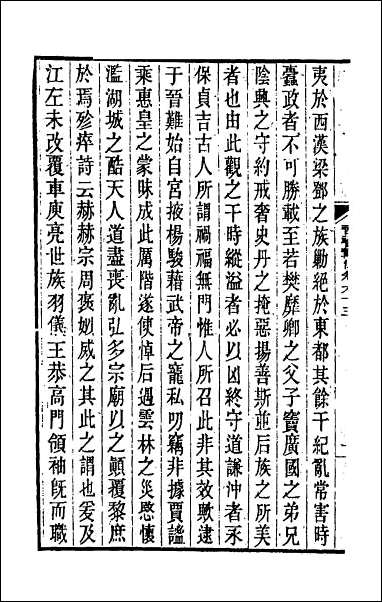 夷於西漢梁鄧之族勦絕於東都其餘干紀亂常害時
蠹政者不可勝載至若樊靡卿之父子竇廣國之弟兄
陰興之守約戒奢史丹之掩惡揚善斯並后族之所美
者也由此觀之干時縱溢者必以凶終守道謙沖者永
保貞吉古人所謂禍福無門惟人所召此非其效歟逮
于晉難始自宮掖楊駿藉武帝之寵私叨竊非據賈謐
乘惠皇之蒙昧成此厲階遂使悼后遇雲林之災愍懷
濫湖城之酷天人道盡喪亂弘多宗廟以之顛覆黎庶
於焉殄瘁詩云赫赫宗周褒姒威之其此之謂也爰及
江左未改覆車庾亮世族羽儀王恭高門領袖旣而職